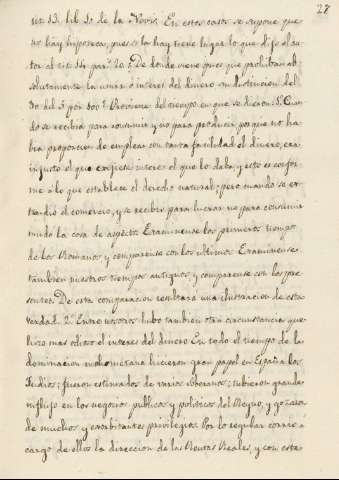 27
tit. 13. lib. 10. de la Novis. En estos casos se supone que
no hay hipoteca, pues si la hay tiene lugar lo que dijo el au-
tor al tit. 14. par.º 20. ¿De donde viene pues que prohiban ab-
solutamente la usura ó interes del dinero sin distincion del
30 del 3 por 100? Proviene del tiempo en que se dieron. 1.º Cuan-
do se recibia para consumir y no para producir, porque no ha-
bia proporcion de emplear con tanta facilidad el dinero, era
injusto el que exijiese interes el que lo daba, y esto es confor-
me á lo que establece el derecho natural: pero cuando se es-
tendió el comercio, y se recibio para lucrar no para consumir
mudó la cosa de aspecto. Examinense los primeros tiempos
de los Romanos y comparense con los ultimos. Examinense
tambien nuestros tiempos antiguos y comparense con los pre-
sentes. De esta comparacion resultara una ilustracion de esta
verdad. 2.º Entre nosotros hubo tambien otra circunstancia que
hizo mas odioso el interes del dinero. En todo el tiempo de la
dominacion mahometana hicieron gran papel en España los
Judios; fueron estimados de varios soberanos; tubieron grande
influjo en los negocios publicos y politicos del Reyno, y gozaron
de muchos y exorbitantes privilegios. Por lo regular corria á
cargo de ellos la direccion de las Rentas Reales, y con esta